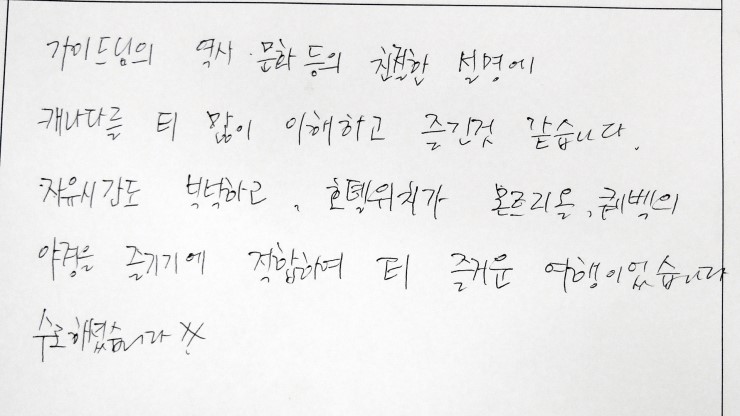 가이드님의 역사·문화 등의 친절한 설명에
캐나다를 더 많이 이해하고 즐긴것 같습니다.
자유시간도 넉넉하고, 호텔위치가 몬트리올, 퀘벡의
야경을 즐기기에 적합하여 더 즐거운 여행이었습니다
수고하셨습니다